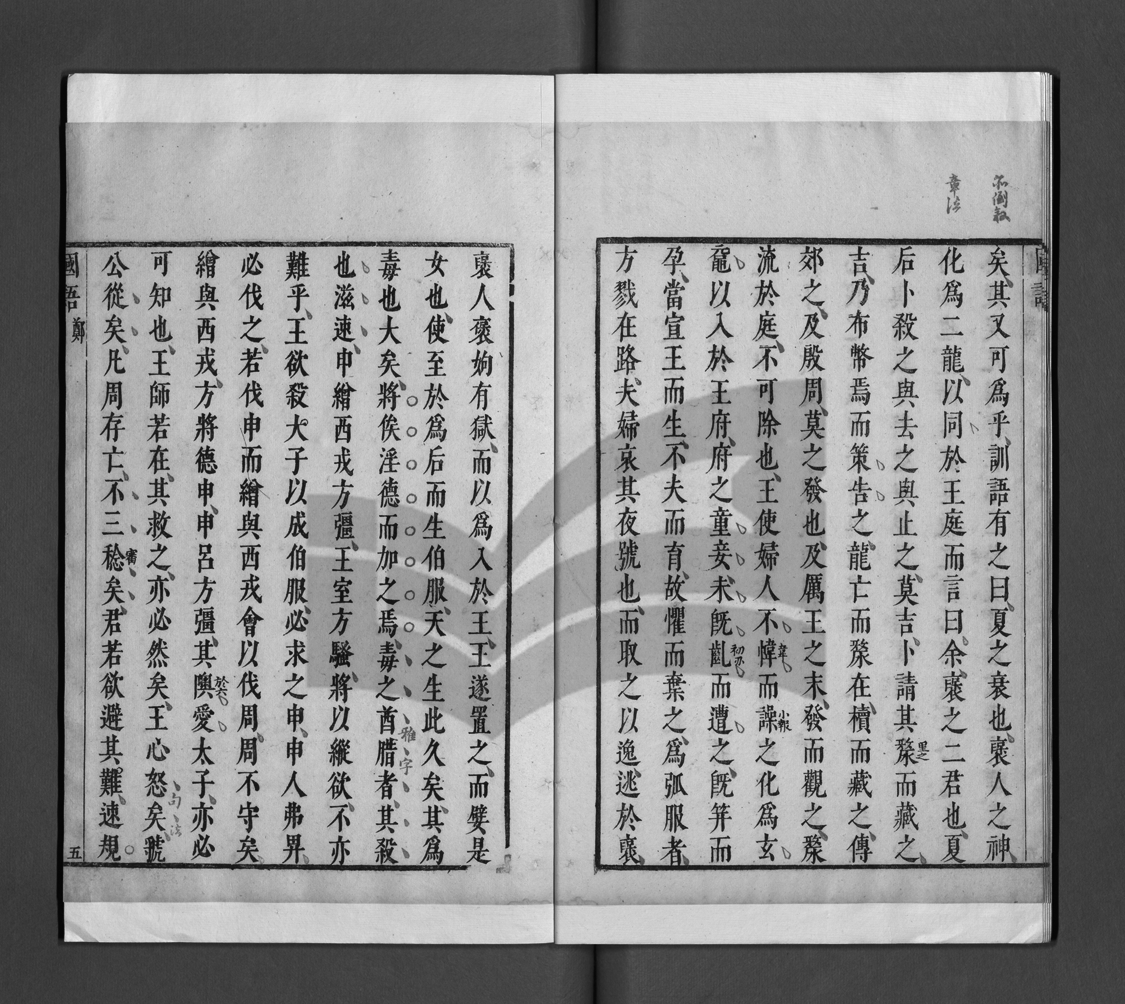 章法
矣其又可爲乎訓語有之曰夏之衰也褒人之神
化爲二龍以同於王庭而言曰余褒之二君也夏
后卜殺之與去之與止之莫吉卜請其漦而藏之
吉乃布幣焉而策告之龍亡而漦在櫝而藏之傳
郊之及殷周莫之發也及厲王之末發而觀之漦
流於庭不可除也王使婦人不幃而譟之化爲玄
黿以入於王府府之童妾未旣齓而遭之旣笄而
孕當宣王而生不夫而育故懼而棄之爲弧服者
方戮在路夫婦哀其夜號也而取之以逸逃於褒
褒人褒姁有獄而以爲入於王王遂置之而嬖是
女也使至於爲后而生伯服天之生此久矣其爲
毒也大矣將俟淫德而加之焉毒之酋腊者其殺
也滋速申繒西戎方彊王室方騷將以縱欲不亦
難乎王欲殺大子以成伯服必求之申申人弗畀
必伐之若伐申而繒與西戎會以伐周周不守矣
繒與西戎方將德申申呂方彊其隩愛太子亦必
可知也王師若在其救之亦必然矣王心怒矣虢
公從矣凡周存亡不三稔矣君若欲避其難速規
國語
鄭
五